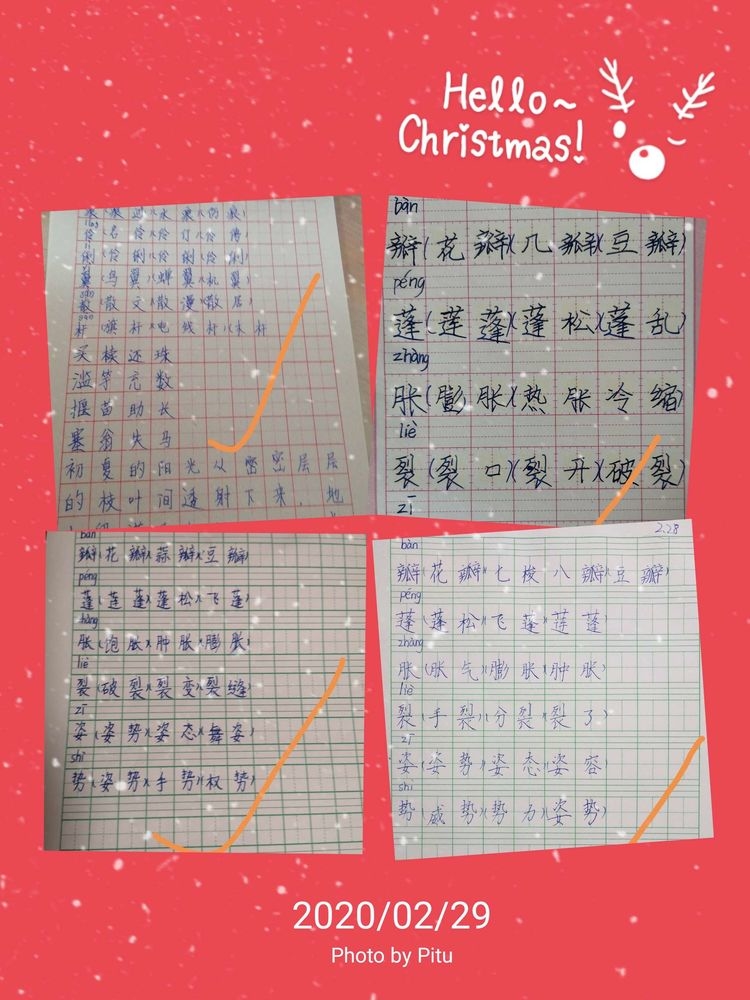 Hello~
Christmas!
俐(伶 俐)(伶 俐)
翼(鸟 翼)(蝉 翼)(机 翼)
散(散 文)(散 漫)(散 居)
杆(旗 杆)(电 线 杆)(木 杆
买 椟 还 珠
滥 竽 充 数
揠 苗 助 长
塞 翁 失 马
初 夏 的 阳 光 从 密 密 层 层
的 枝 叶 间 透 射 下 来 , 地
bàn
瓣(花 瓣)(几 瓣)(豆 瓣)
péng
蓬(莲 蓬)(蓬 松)(蓬 乱)
zhàng
胀(膨 胀)(热 胀 冷 缩)
liè
裂(裂 口)(裂 开)(破 裂)
zī
bàn
瓣(花 瓣)(蒜 瓣)(豆 瓣)
péng
蓬(莲 蓬)(蓬 松)(飞 蓬)
zhàng
胀(饱 胀)(肿 胀)(膨 胀)
liè
裂(破 裂)(裂 变)(裂 缝)
zī
姿(姿 势)(姿 态)(舞 姿)
shì
势(姿 势)(手 势)(权 势)
2.28
bàn
瓣(花 瓣)(七 梭 八 瓣)(豆 瓣)
péng
蓬(蓬 松)(飞 蓬)(莲 蓬)
zhàng
胀(胀 气)(膨 胀)(肿 胀)
liè
裂(手 裂)(分 裂)(裂 了)
zī
姿(姿 势)(姿 态)(姿 容)
shì
势(威 势)(势 力)(姿 势)
2020/02/29
Photo by Pitu